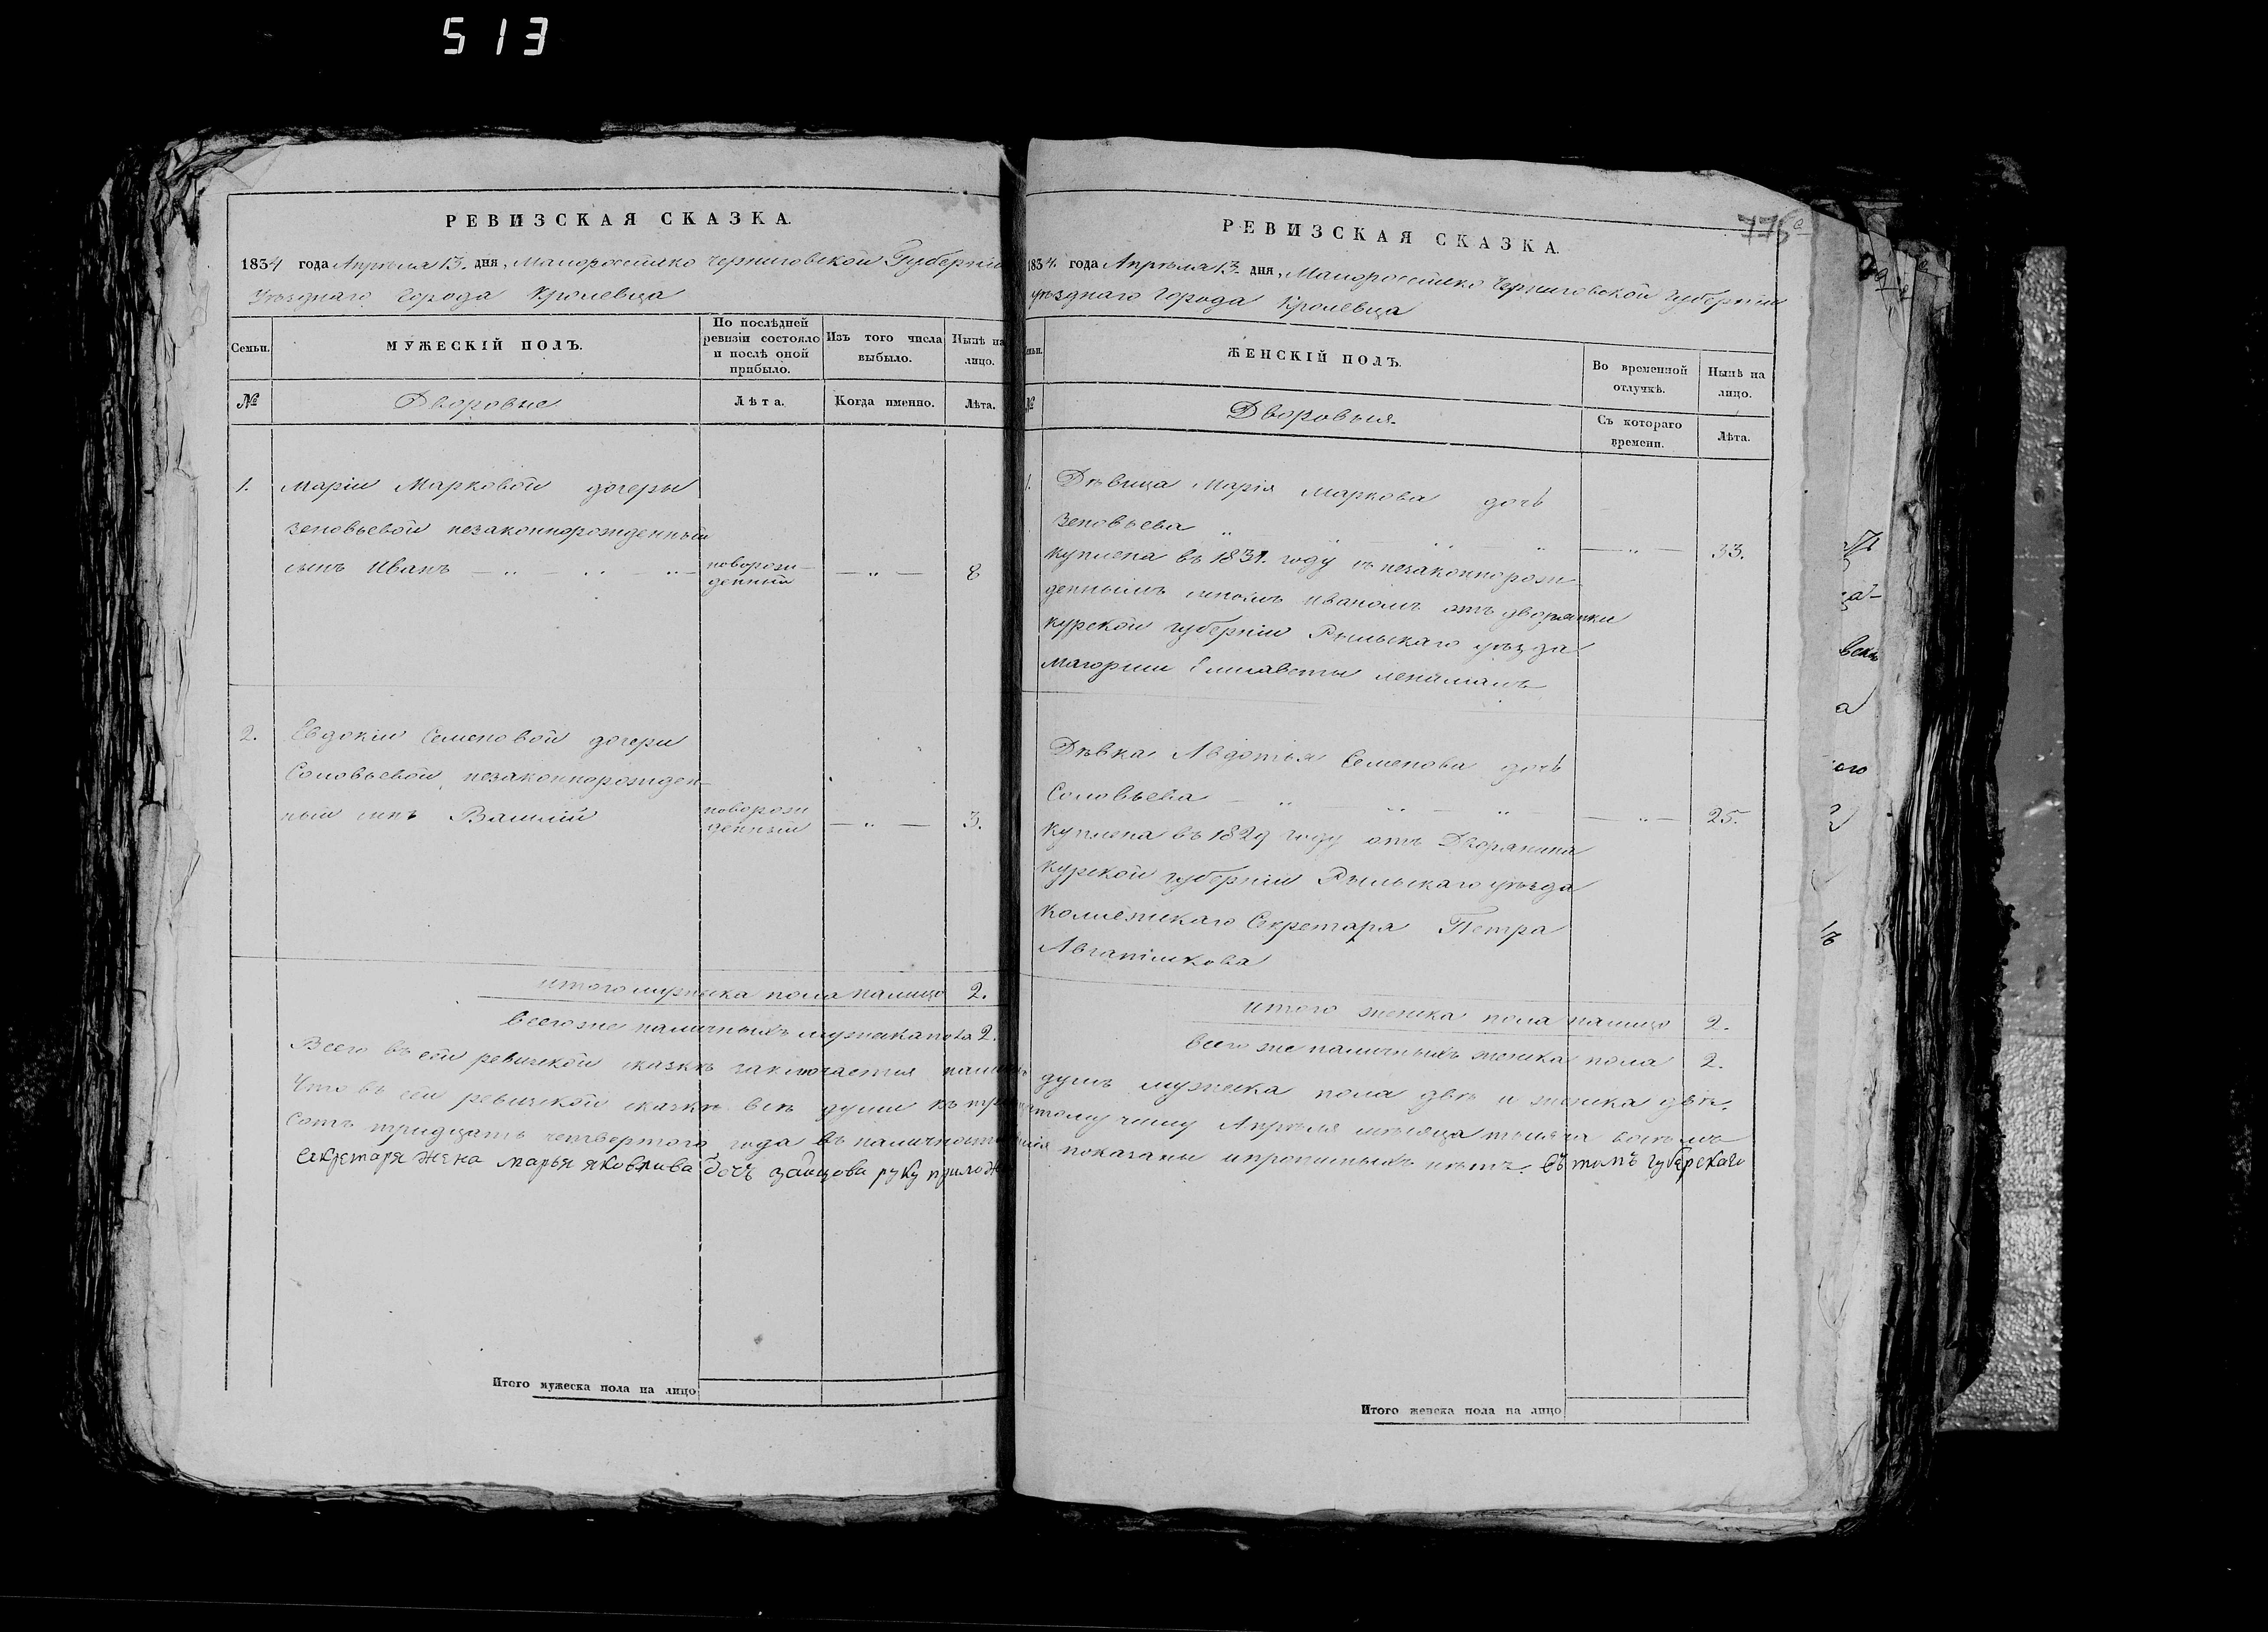 513
РЕВИЗСКАЯ СКАЗКА.
1834 года Апрѣля 13. дня, Малороссійско Черниговской Губерніи
Уѣзднаго Города Кролевца
Семьи.
МУЖЕСКІЙ ПОЛЪ.
По послѣдней
ревизіи состояло
и послѣ оной
прибыло.
Изъ того числа
выбыло.
Нынѣ на
лицо.
№
Дворовые
Лѣта.
Когда именно.
Лѣта.
1. Маріи Марковой дочери
Зеновьевой незаконнорожденный
сынъ Иванъ — „ — „ — „ — новорож-
денный — „ — 8
2. Евдокіи Семеновой дочери
Соловьевой незаконнорожден-
ный сынъ Василій новорож
денный — „ — 3.
итого мужеска пола налицо 2.
всего же наличныхъ мужеска пола 2.
Всего въ сей ревизской сказкѣ заключается
Что въ сей ревизской сказкѣ всѣ души
сотъ тридцать четвертого года въ наличности
секретаря жена марья яковлива дочъ зайцова руку
Итого мужеска пола на лицо
775
РЕВИЗСКАЯ СКАЗКА.
1834. года Апрѣля 13. дня, Малороссійско Черниговской Губерніи
уѣзднаго Города Кролевца
ЖЕНСКІЙ ПОЛЪ.
Во временной
отлучкѣ.
Нынѣ на
лицо.
№
Дворовыя.
Съ котораго
времени.
Лѣта.
1. Дѣвица Марія Маркова дочь
Зеновьева „ „ „ „ — „ — 33.
куплена въ 1831. году съ незаконнорож-
деннымъ сыномъ Иваномъ отъ дворянки
Курской губерніи Рыльскаго уѣзда
Маіорши Елисаветы
Дѣвка Авдотья Семенова дочь
Соловьева — „ — „ — „ — „ — 25.
куплена въ 1829 году отъ Дворянина
Курской губерніи Рыльскаго уѣзда
Коллежскаго Секретаря Петра
итого женска пола налицо 2.
всего же наличныхъ женска пола 2.
душъ мужеска пола двѣ и женска двѣ.
числу Апрѣля мѣсяца тысяча восемь
показаны и прописныхъ нѣтъ. въ томъ губерскаго
Итого женска пола на лицо